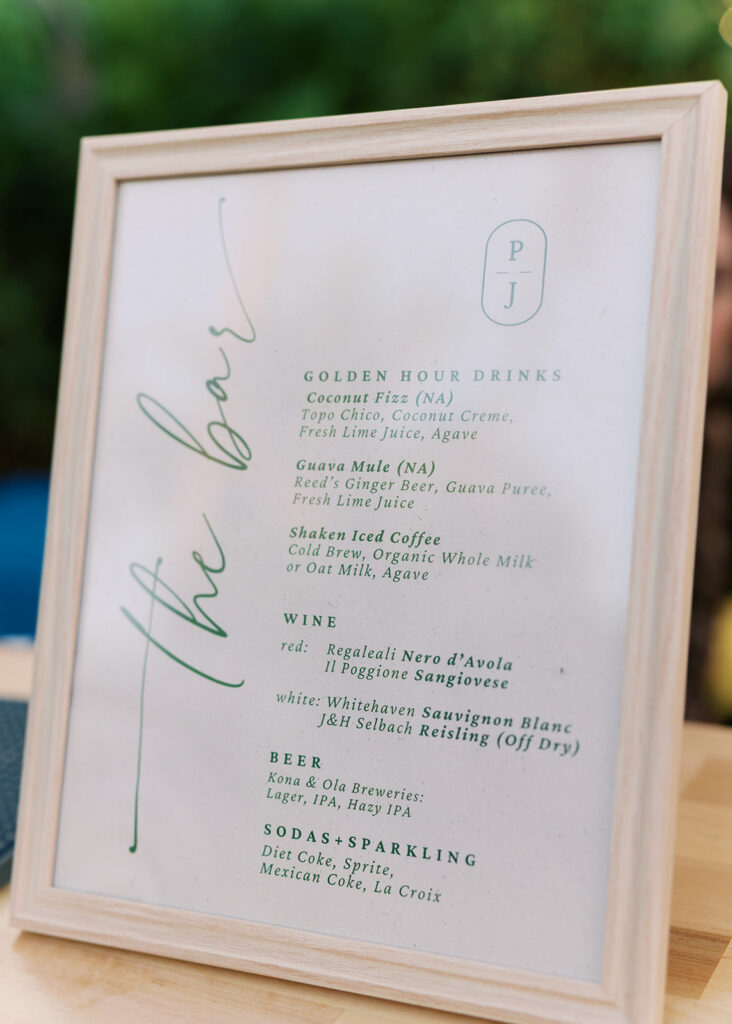 the bar
P
J
GOLDEN HOUR DRINKS
Coconut Fizz (NA)
Topo Chico, Coconut Creme,
Fresh Lime Juice, Agave
Guava Mule (NA)
Reed's Ginger Beer, Guava Puree,
Fresh Lime Juice
Shaken Iced Coffee
Cold Brew, Organic Whole Milk
or Oat Milk, Agave
WINE
red: Regaleali Nero d'Avola
Il Poggione Sangiovese
white: Whitehaven Sauvignon Blanc
J&H Selbach Reisling (Off Dry)
BEER
Kona & Ola Breweries:
Lager, IPA, Hazy IPA
SODAS+SPARKLING
Diet Coke, Sprite,
Mexican Coke, La Croix